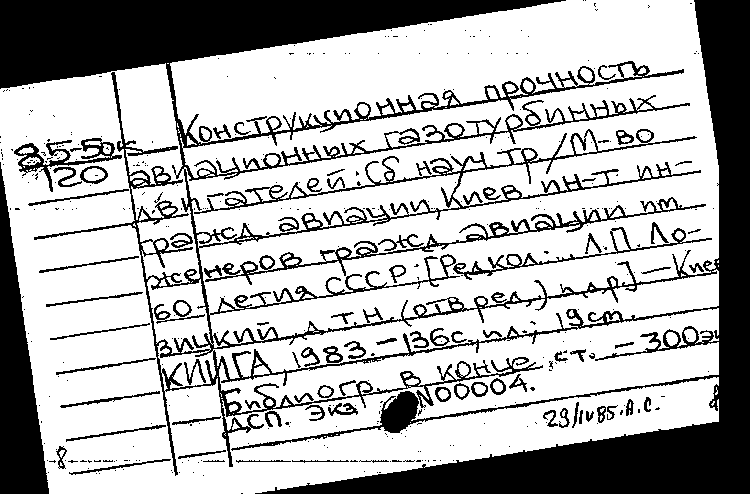 85-50к
120
Конструкционная прочность
авиационных газотурбинных
двигателей: Сб науч. тр. / М-во
гражд. авиации, Киев. ин-т ин-
женеров гражд. авиации им.
60-летия СССР; [Редкол.: .. Л.П. Ло-
зицкий, д.т.н. (отв ред.) и др.] — Киев
КИИГА, 1983. - 136с., ил.; 19cm.
Библиогр. в конце ст. - 300эк
ДСП. Экз N00004.
29/IV85. А.С.
8